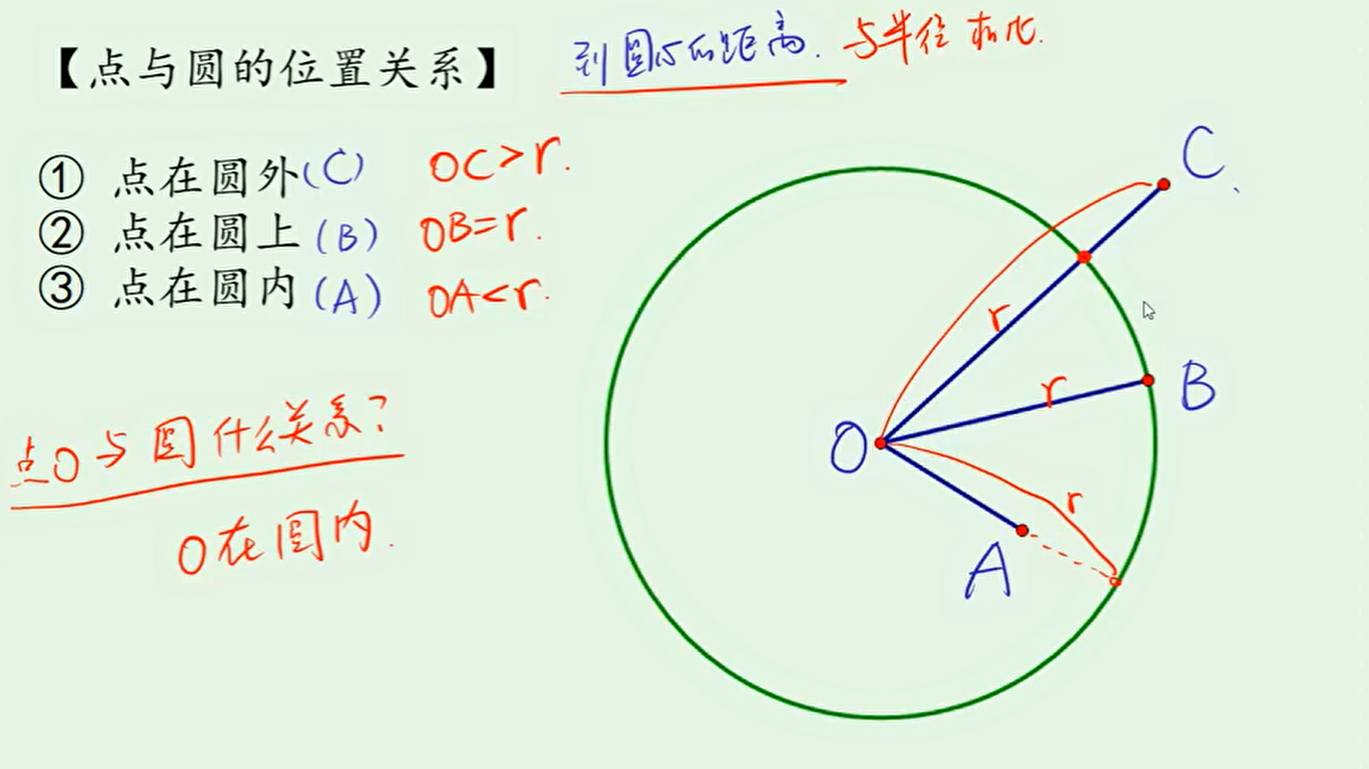 【点与圆的位置关系】 到圆心的距离. 与半径相比.
① 点在圆外(C) OC>r.
② 点在圆上(B) OB=r.
③ 点在圆内(A) OA<r.
点O与圆什么关系?
O在圆内.
C
r
r
B
O
r
A